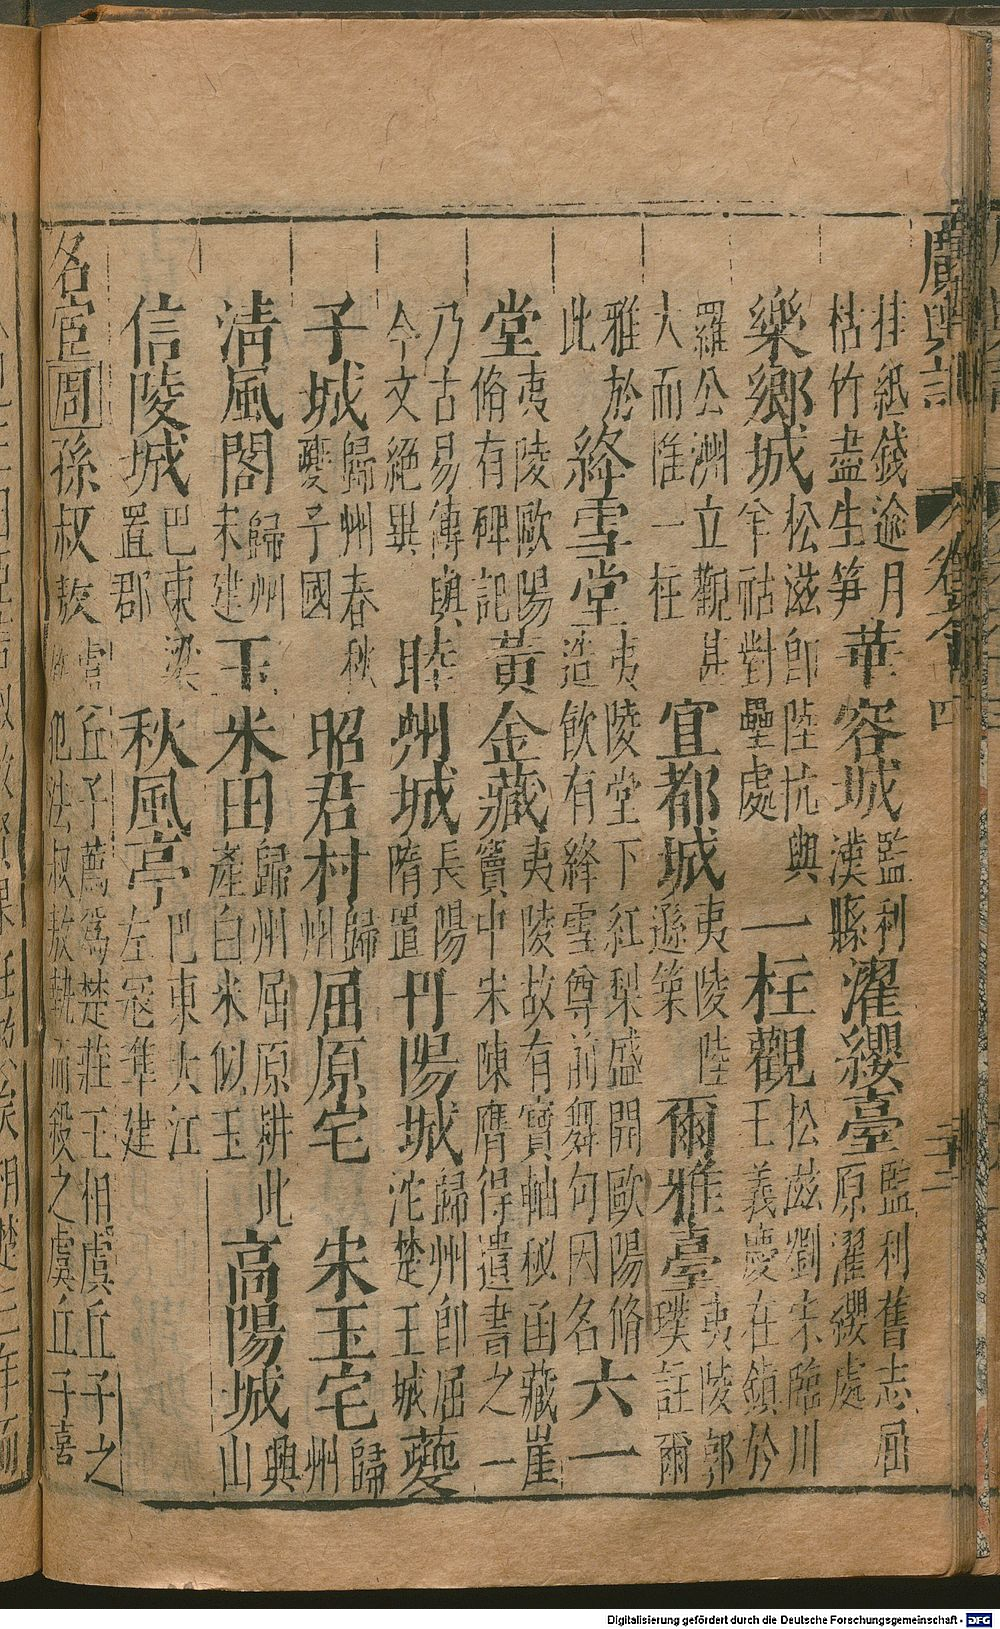 廣輿記 卷之十四
挂紙錢逾月枯竹盡生笋 華容城 監利漢縣 濯纓臺 監利舊志屈原濯纓處
樂鄉城 松滋卽陸抗與羊祜對壘處 一柱觀 松滋劉宋臨川王義慶在鎮於
羅公洲立觀甚大而惟一柱 宜都城 夷陵陸遜築 爾雅臺 夷陵郭璞註爾
雅於此 絳雪堂 夷陵堂下紅梨盛開歐陽脩造飲有絳雪尊前舞句因名 六一
堂 夷陵歐陽脩有碑記 黃金藏 夷陵故有寶軸秘函藏崖竇中宋陳膺得遺書之一
乃古易傳與今文絕異 睦州城 長陽隋置 丹陽城 歸州卽屈沱楚王城 夔
子城 歸州春秋夔子國 昭君村 歸州 屈原宅 宋玉宅 歸州
清風閣 歸州宋建 玉米田 歸州屈原耕此產白米似玉 高陽城 興山
信陵城 巴東梁置郡 秋風亭 巴東大江左寇準建
名宦 周 孫叔敖 虞丘子薦爲楚莊王相虞丘子之犯法叔敖執而殺之虞丘子喜
Digitalisierung gefördert durch die Deutsche Forschungsgemeinschaft - DFG